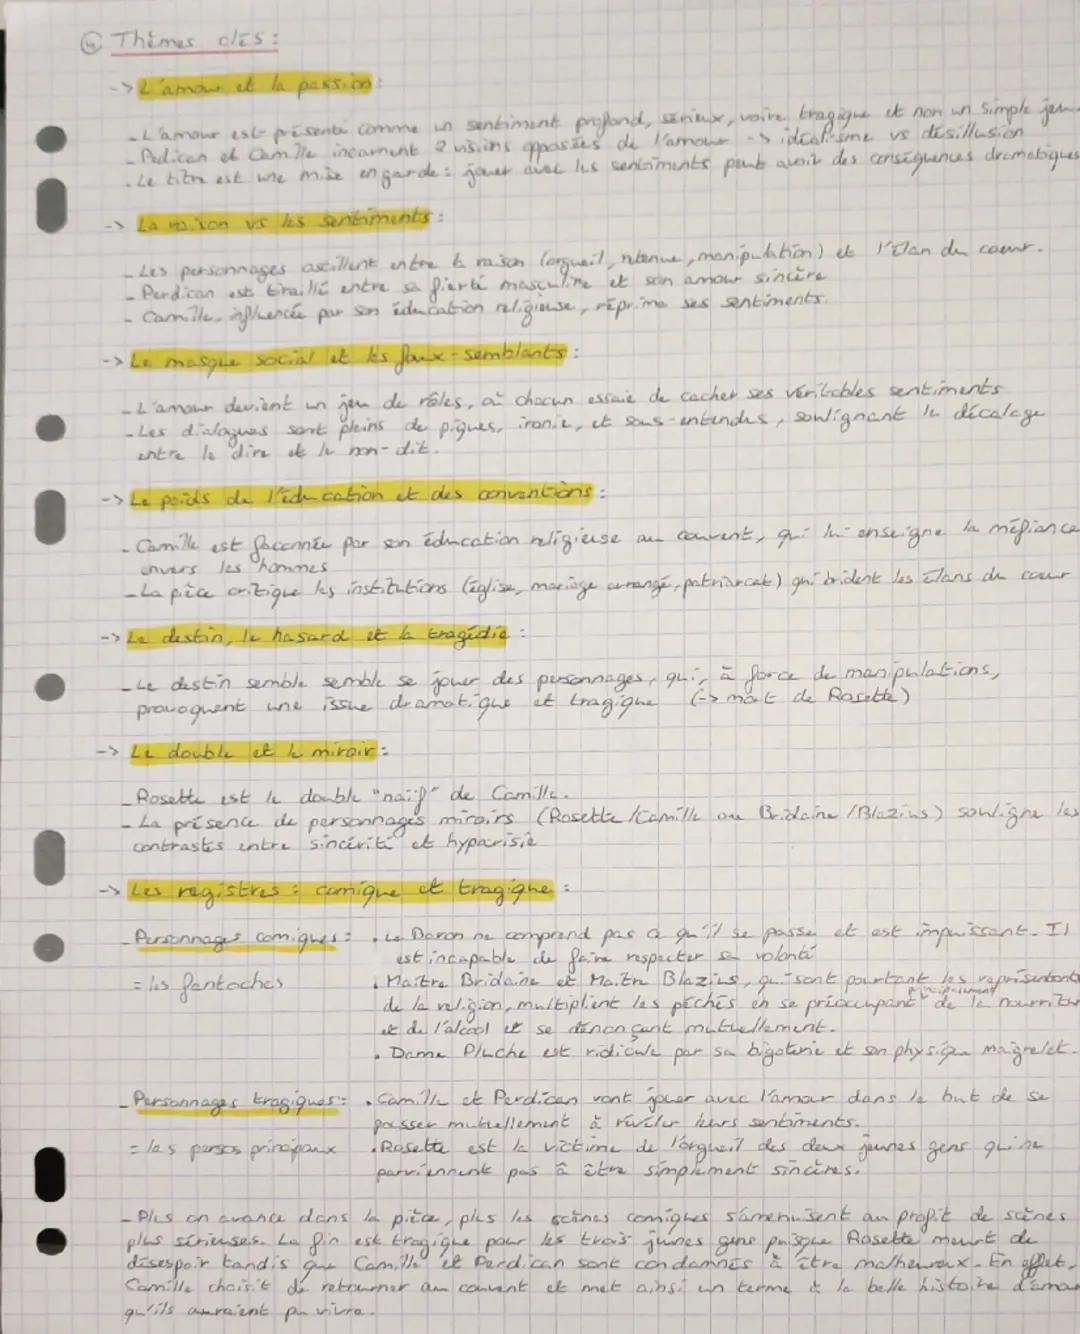 ④ Thèmes clés :
-> L'amour et la passion :
- L'amour est présenté comme un sentiment profond, sérieux, voire tragique et non un simple jeu
- Pedican et Camille incarnent 2 visions opposées de l'amour -> idéalisme vs désillusion
- Le titre est une mise en garde : jouer avec les sentiments peut avoir des conséquences dramatiques
-> La raison vs les sentiments :
- Les personnages oscillent entre la raison (orgueil, retenue, manipulation) et l'élan du cœur.
- Perdican est tiraillé entre sa fierté masculine et son amour sincère
- Camille, influencée par son éducation religieuse, réprime ses sentiments.
-> Le masque social et les faux-semblants :
- L'amour devient un jeu de rôles, où chacun essaie de cacher ses véritables sentiments
- Les dialogues sont pleins de piques, ironie, et sous-entendus, soulignant le décalage
entre le dire et le non-dit.
-> Le poids de l'éducation et des conventions :
- Camille est façonnée par son éducation religieuse au couvent, qui lui enseigne la méfiance
envers les hommes
- La pièce critique les institutions (église, mariage arrangé, patriarcat) qui brident les élans du cœur
-> Le destin, le hasard et la tragédie :
- Le destin semble semble se jouer des personnages, qui, à force de manipulations,
provoquent une issue dramatique et tragique (-> mort de Rosette)
-> Le double et le miroir :
- Rosette est le double "naïf" de Camille.
- La présence de personnages miroirs (Rosette/Camille ou Bridaine/Blazius) souligne les
contrastes entre sincérité et hypocrisie
-> Les registres : comique et tragique :
- Personnages comiques : . Le Baron ne comprend pas ce qu'il se passe et est impuissant. Il
est incapable de faire respecter sa volonté
= les fantoches . Maître Bridaine et Maître Blazius, qui sont pourtant les représentants
de la religion, multiplient les péchés en se préoccupant principalement de la nourriture
et de l'alcool et se dénonçant mutuellement.
. Dame Pluche est ridicule par sa bigoterie et son physique maigrelet.
- Personnages tragiques : . Camille et Perdican vont jouer avec l'amour dans le but de se
pousser mutuellement à révéler leurs sentiments.
= les persos principaux . Rosette est la victime de l'orgueil des deux jeunes gens qui ne
parviennent pas à être simplement sincères.
- Plus on avance dans la pièce, plus les scènes comiques s'amenuisent au profit de scènes
plus sérieuses. La fin est tragique pour les trois jeunes gens puisque Rosette meurt de
désespoir tandis que Camille et Perdican sont condamnés à être malheureux. En effet,
Camille choisit de retourner au couvent et met ainsi un terme à la belle histoire d'amour
qu'ils auraient pu vivre.